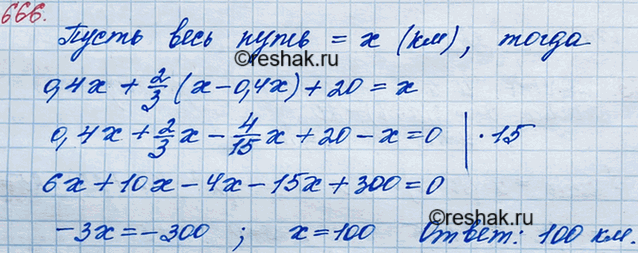 666.
Пусть весь путь = x (км), тогда
0,4x + 2/3 (x - 0,4x) + 20 = x
0,4x + 2/3 x - 4/15 x + 20 - x = 0 | · 15
6x + 10x - 4x - 15x + 300 = 0
-3x = -300 ; x = 100 Ответ: 100 км.
©reshak.ru
©reshak.ru